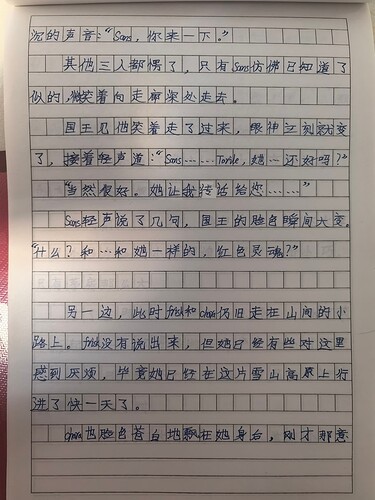 沉的声音：“Sans，你来一下。”
其他三人都愣了，只有Sans仿佛已知道了
似的，微笑着向走廊深处走去。
国王见他笑着走了过来，眼神立刻就变
了，接着轻声道：“Sans……Toriel，她…还好吗？”
“当然很好。她让我传话给您……”
Sans轻声说了几句，国王的脸色瞬间大变。
“什么？和…和她一样的，红色灵魂？”
另一边，此时frisk和chara仍旧走在山间的小
路上。frisk没有说出来，但她已经有些对这里
感到厌烦，毕竟她已经在这片雪山高原上行
进了快一天了。
chara也脸色苍白地飘在她身后，刚才那意